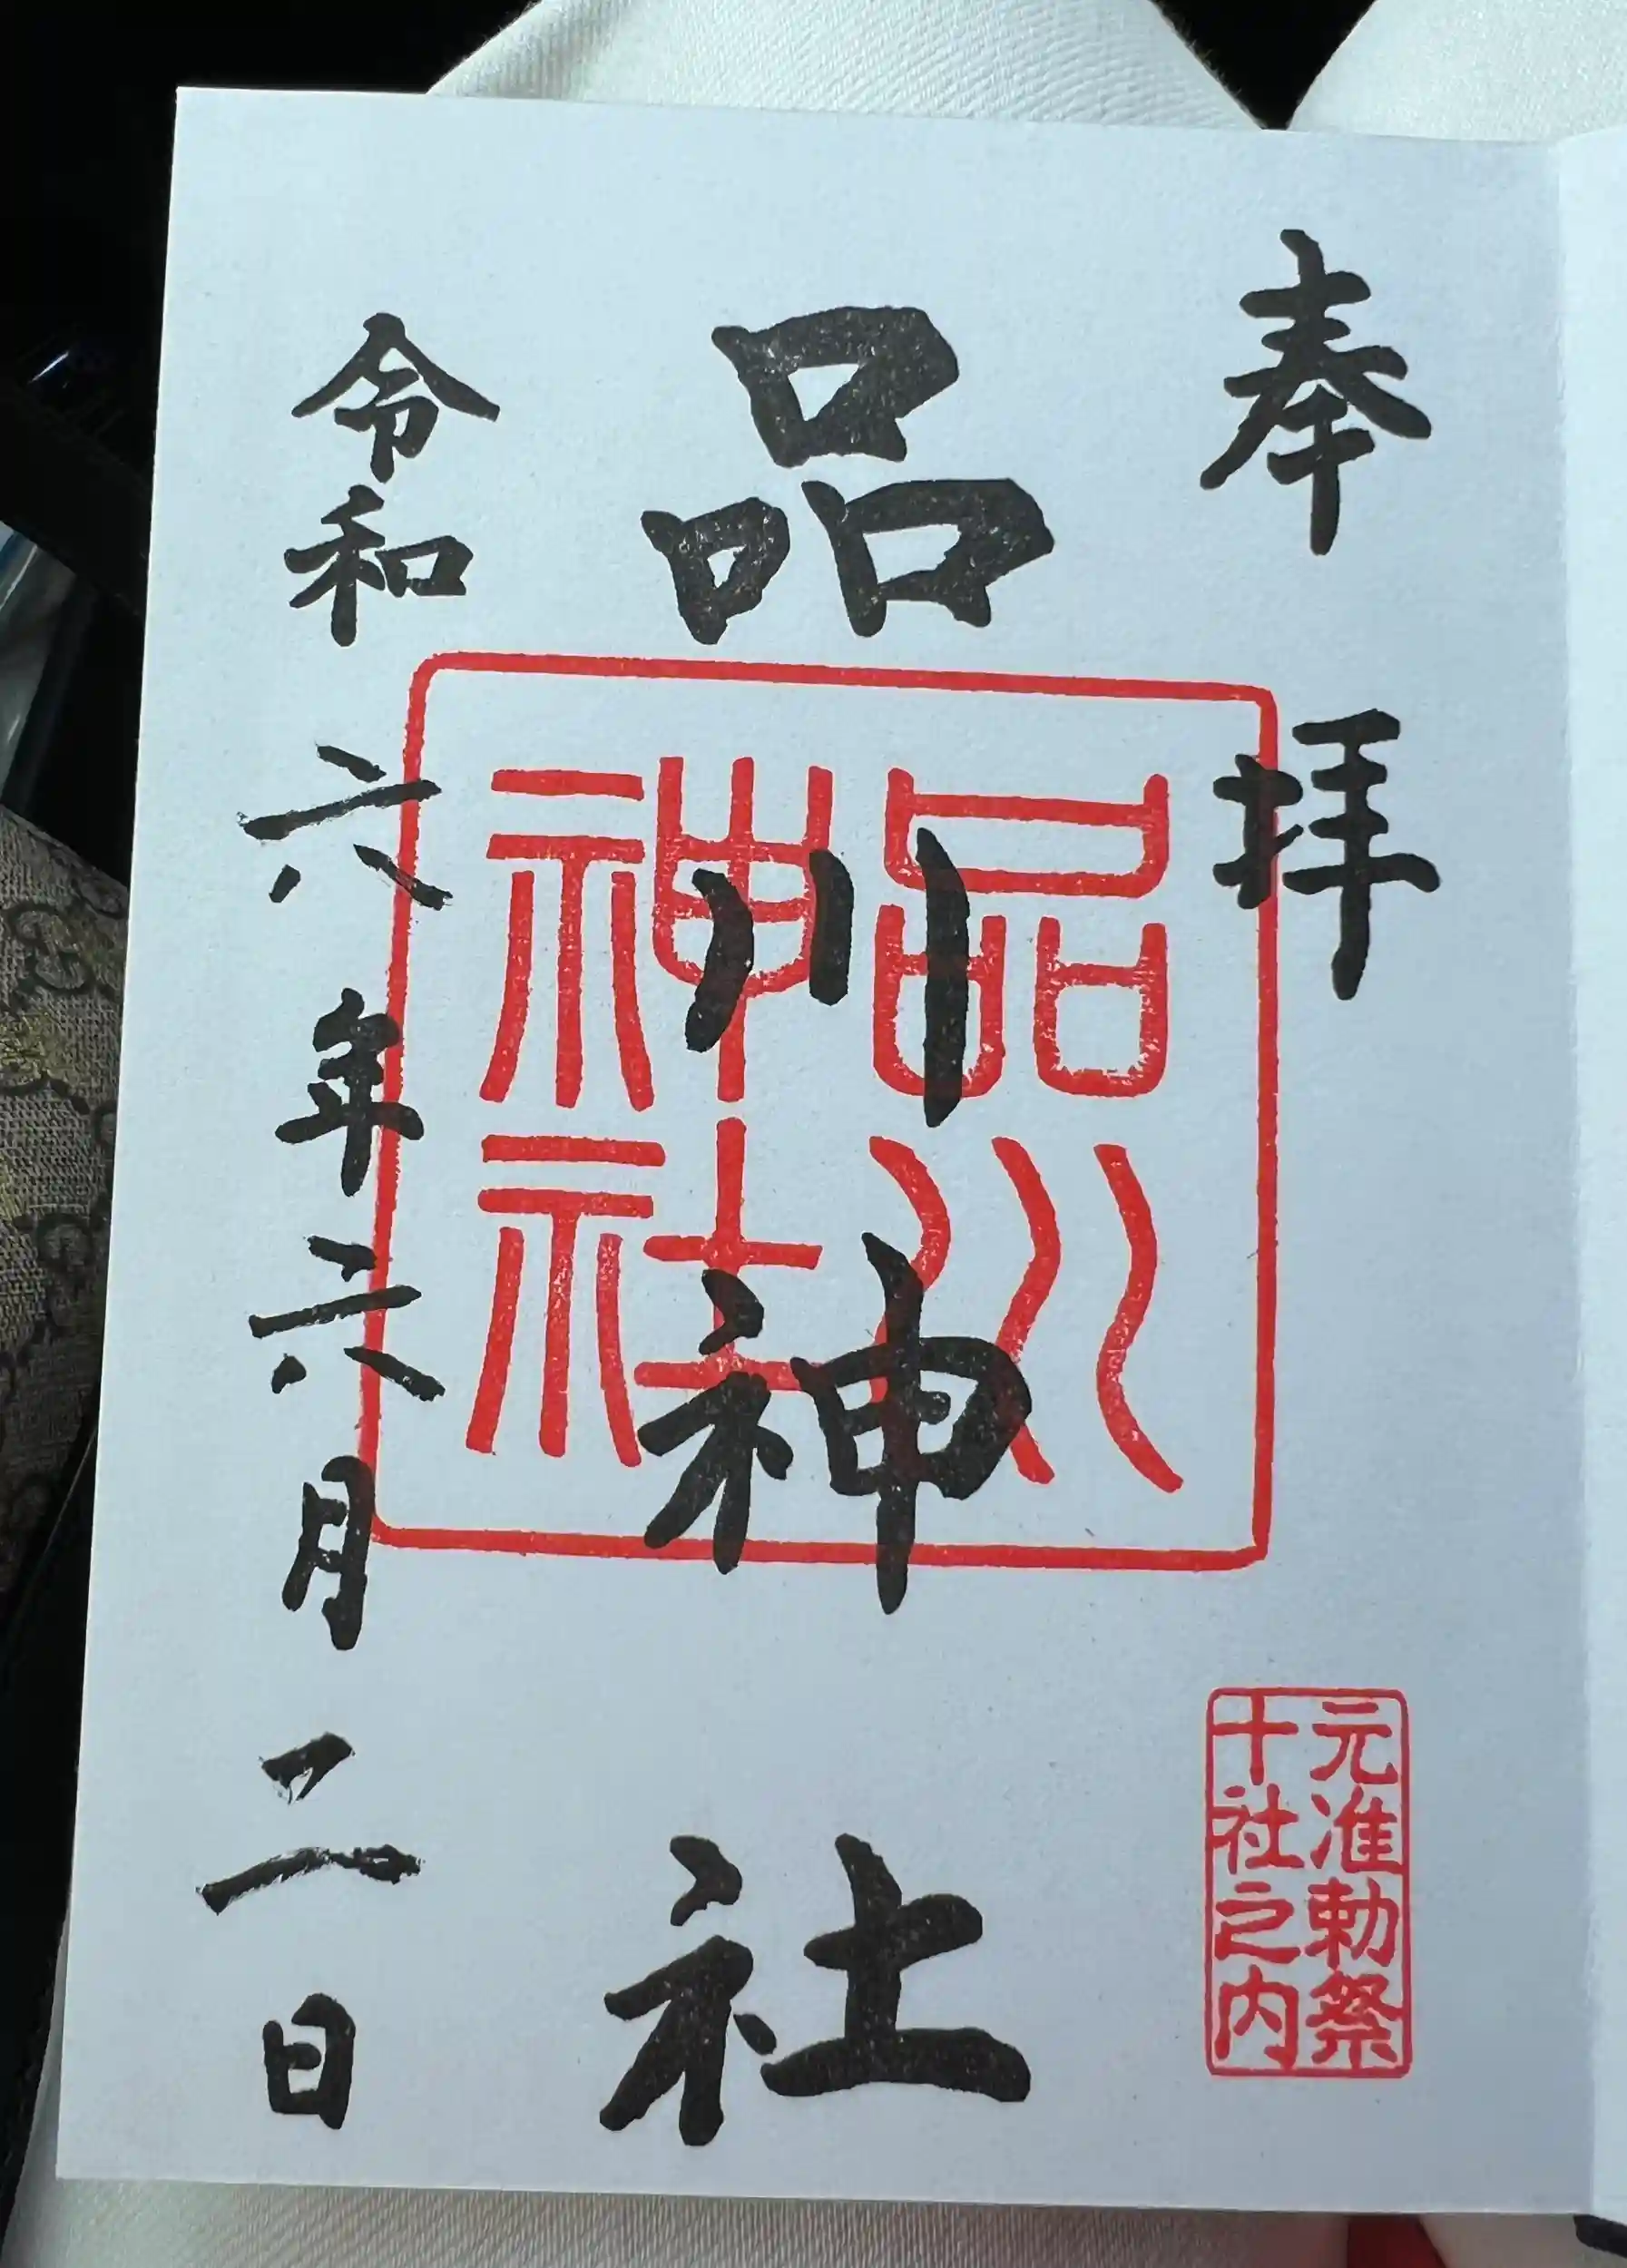 奉拝
品川神社
品川
神社
元准勅祭
十社之内
令和六年六月二日